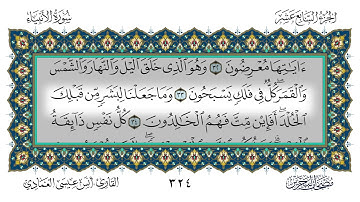 الجزء السابع عشر
سورة الأنبياء
ءَايَٰتِهَا مُعْرِضُونَ ۝٣٢ وَهُوَ الَّذِي خَلَقَ الَّيْلَ وَالنَّهَارَ وَالشَّمْسَ
وَالْقَمَرَ كُلٌّ فِي فَلَكٍ يَسْبَحُونَ ۝٣٣ وَمَا جَعَلْنَا لِبَشَرٍ مِّن قَبْلِكَ
الْخُلْدَ أَفَإِيْن مِّتَّ فَهُمُ الْخَٰلِدُونَ ۝٣٤ كُلُّ نَفْسٍ ذَآئِقَةُ
مصحف البحرين
٣٢٤
القارئ: أنس عيسى العمادي